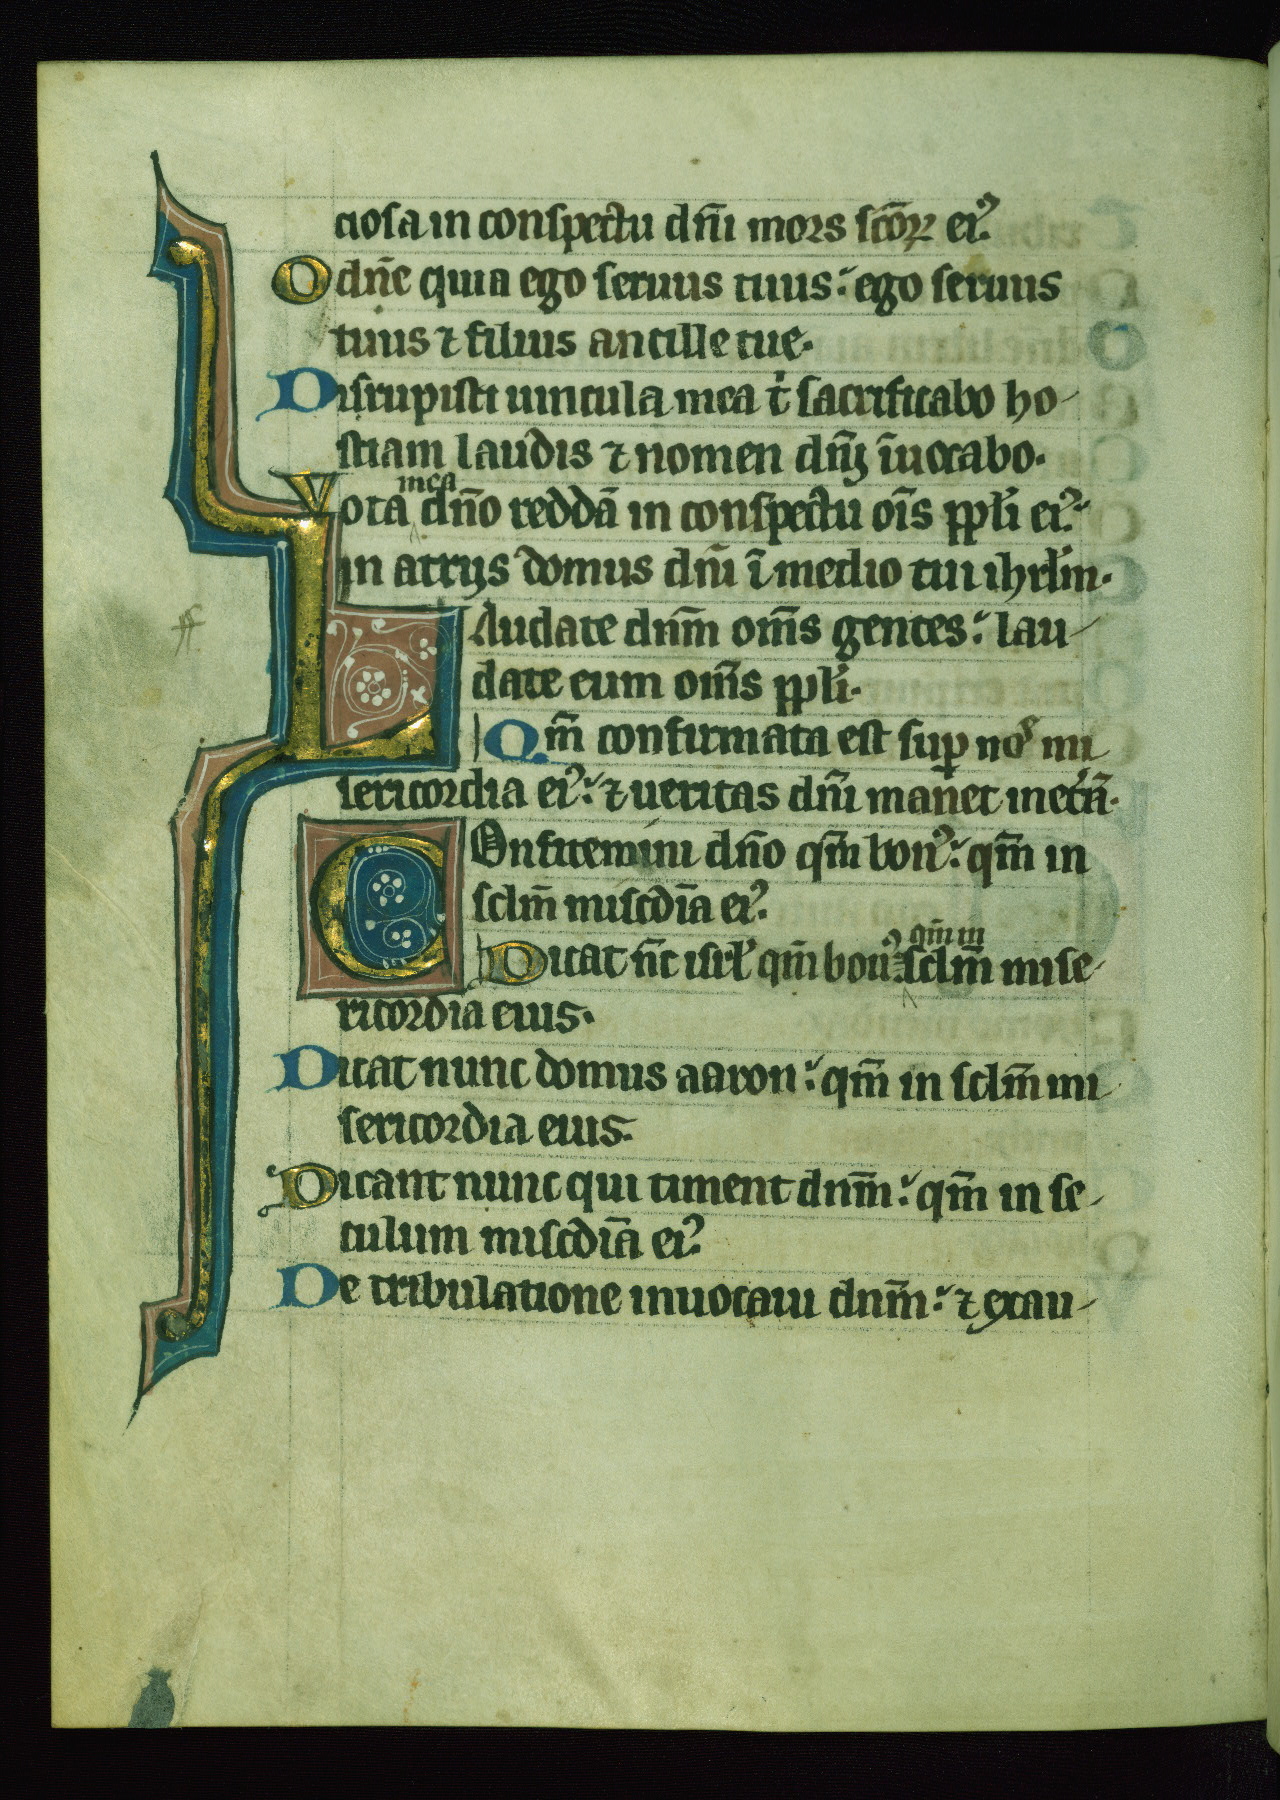 ciosa in conspectu dn̄i mors sc̄oꝝ eiꝰ.
O dn̄e quia ego seruus tuus: ego seruus
tuus ⁊ filius ancille tue.
Disrupisti uincula mea t̄ sacrificabo ho-
stiam laudis ⁊ nomen dn̄ı̄ īuocabo.
mea
Vota dn̄o reddā in conspectu oīs ppl̄i eiꝰ:
in atrijs domus dn̄i ī medio tui ihrl̄m.
Laudate dn̄m om̄s gentes: lau-
date eum om̄s ppl̄i.
Qm̄ confirmata est suꝑ nos mi
sericordia eiꝰ: ⁊ ueritas dn̄i manet in et̄n̄.
Confitemini dn̄o qm̄ bonꝰ: qm̄ in
sclm̄ miscdīa eiꝰ.
qm̄ in
Dicat n̄c isrl̄ qm̄ bonꝰ: sclm̄ mise-
ricordia eius.
Dicat nunc domus aaron: qm̄ in sclm̄ mi
sericordia eius.
Dicant nunc qui timent dn̄m: qm̄ in se-
culum miscdīa eiꝰ.
De tribulatione inuocaui dn̄m: ⁊ exau-